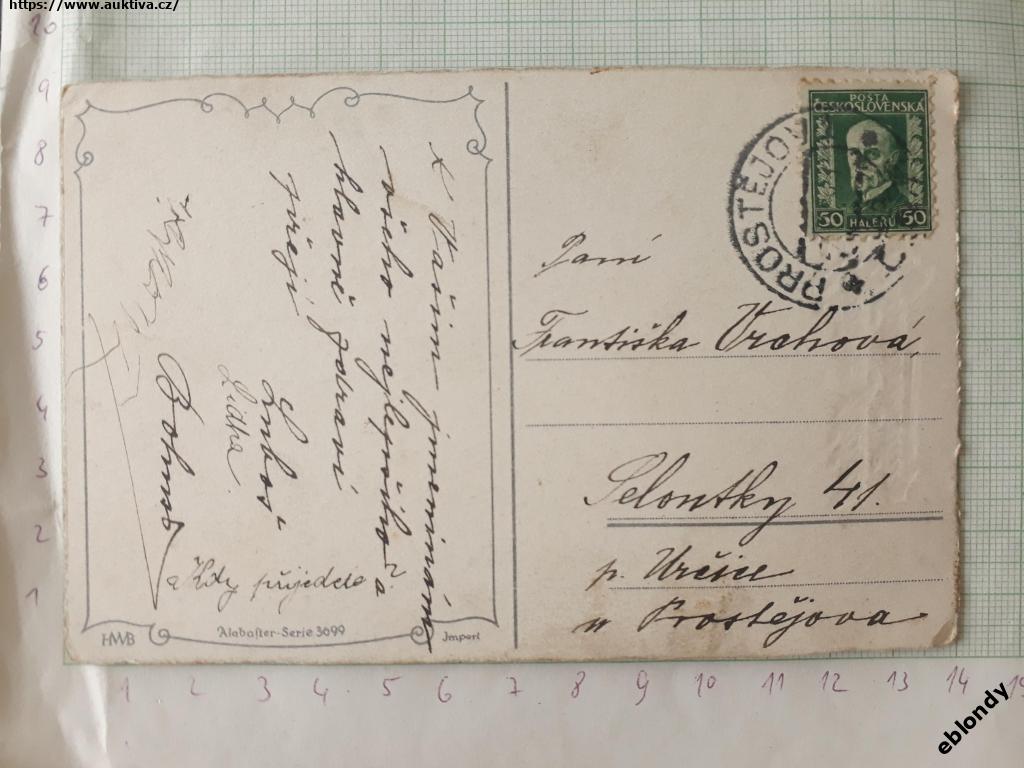 https://www.auktiva.cz/
10
9
8
7
6
5
4
3
2
1
K Vašim jmeninám
všeho nejlepšího a
hlavně zdraví
přejí
Luboš
Lidka.
Bohuš
a Kdy přijedete
HWB
Alabaster-Serie 3699
Import
POŠTA
ČESKOSLOVENSKÁ
50 HALÉŘŮ 50
PROSTĚJOV
Paní
Františka Vrchová
Seloutky 41.
p. Určice
u Prostějova
1 2 3 4 5 6 7 8 9 10 11 12 13 14 15
eblondy